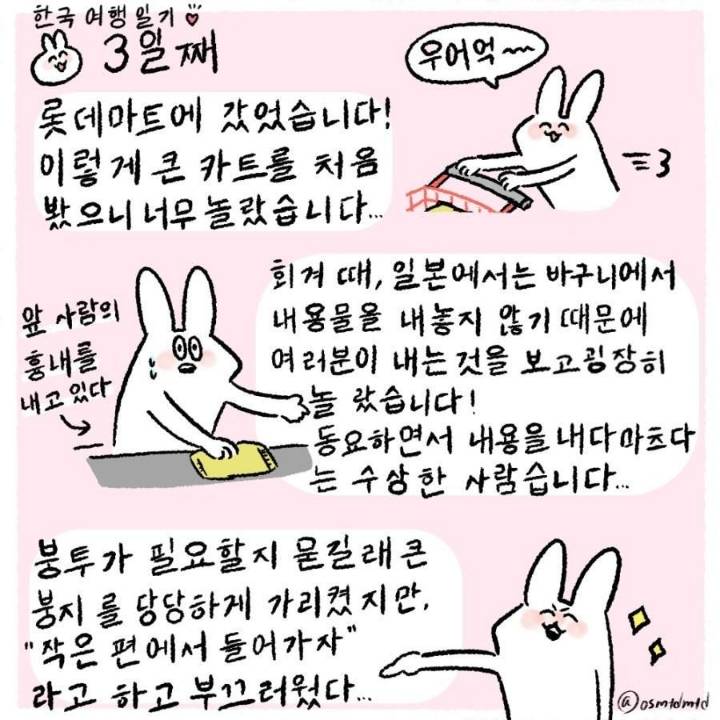 한국 여행 일기
3일째
우어억~~
롯데마트에 갔었습니다!
이렇게 큰 카트를 처음
봤으니 너무 놀랐습니다...
회겨 때, 일본에서는 바구니에서
내용물을 내놓지 않기 때문에
여러분이 내는 것을 보고 굉장히
놀 랐습니다!
동요하면서 내용을 내다마츠다
는 수상한 사람습니다...
앞 사람의
흉내를
내고 있다
봉투가 필요할지 묻길래 큰
봉지 를 당당하게 가리켰지만,
"작은 편에서 들어가자"
라고 하고 부끄러웠다...
@osmtdmtd